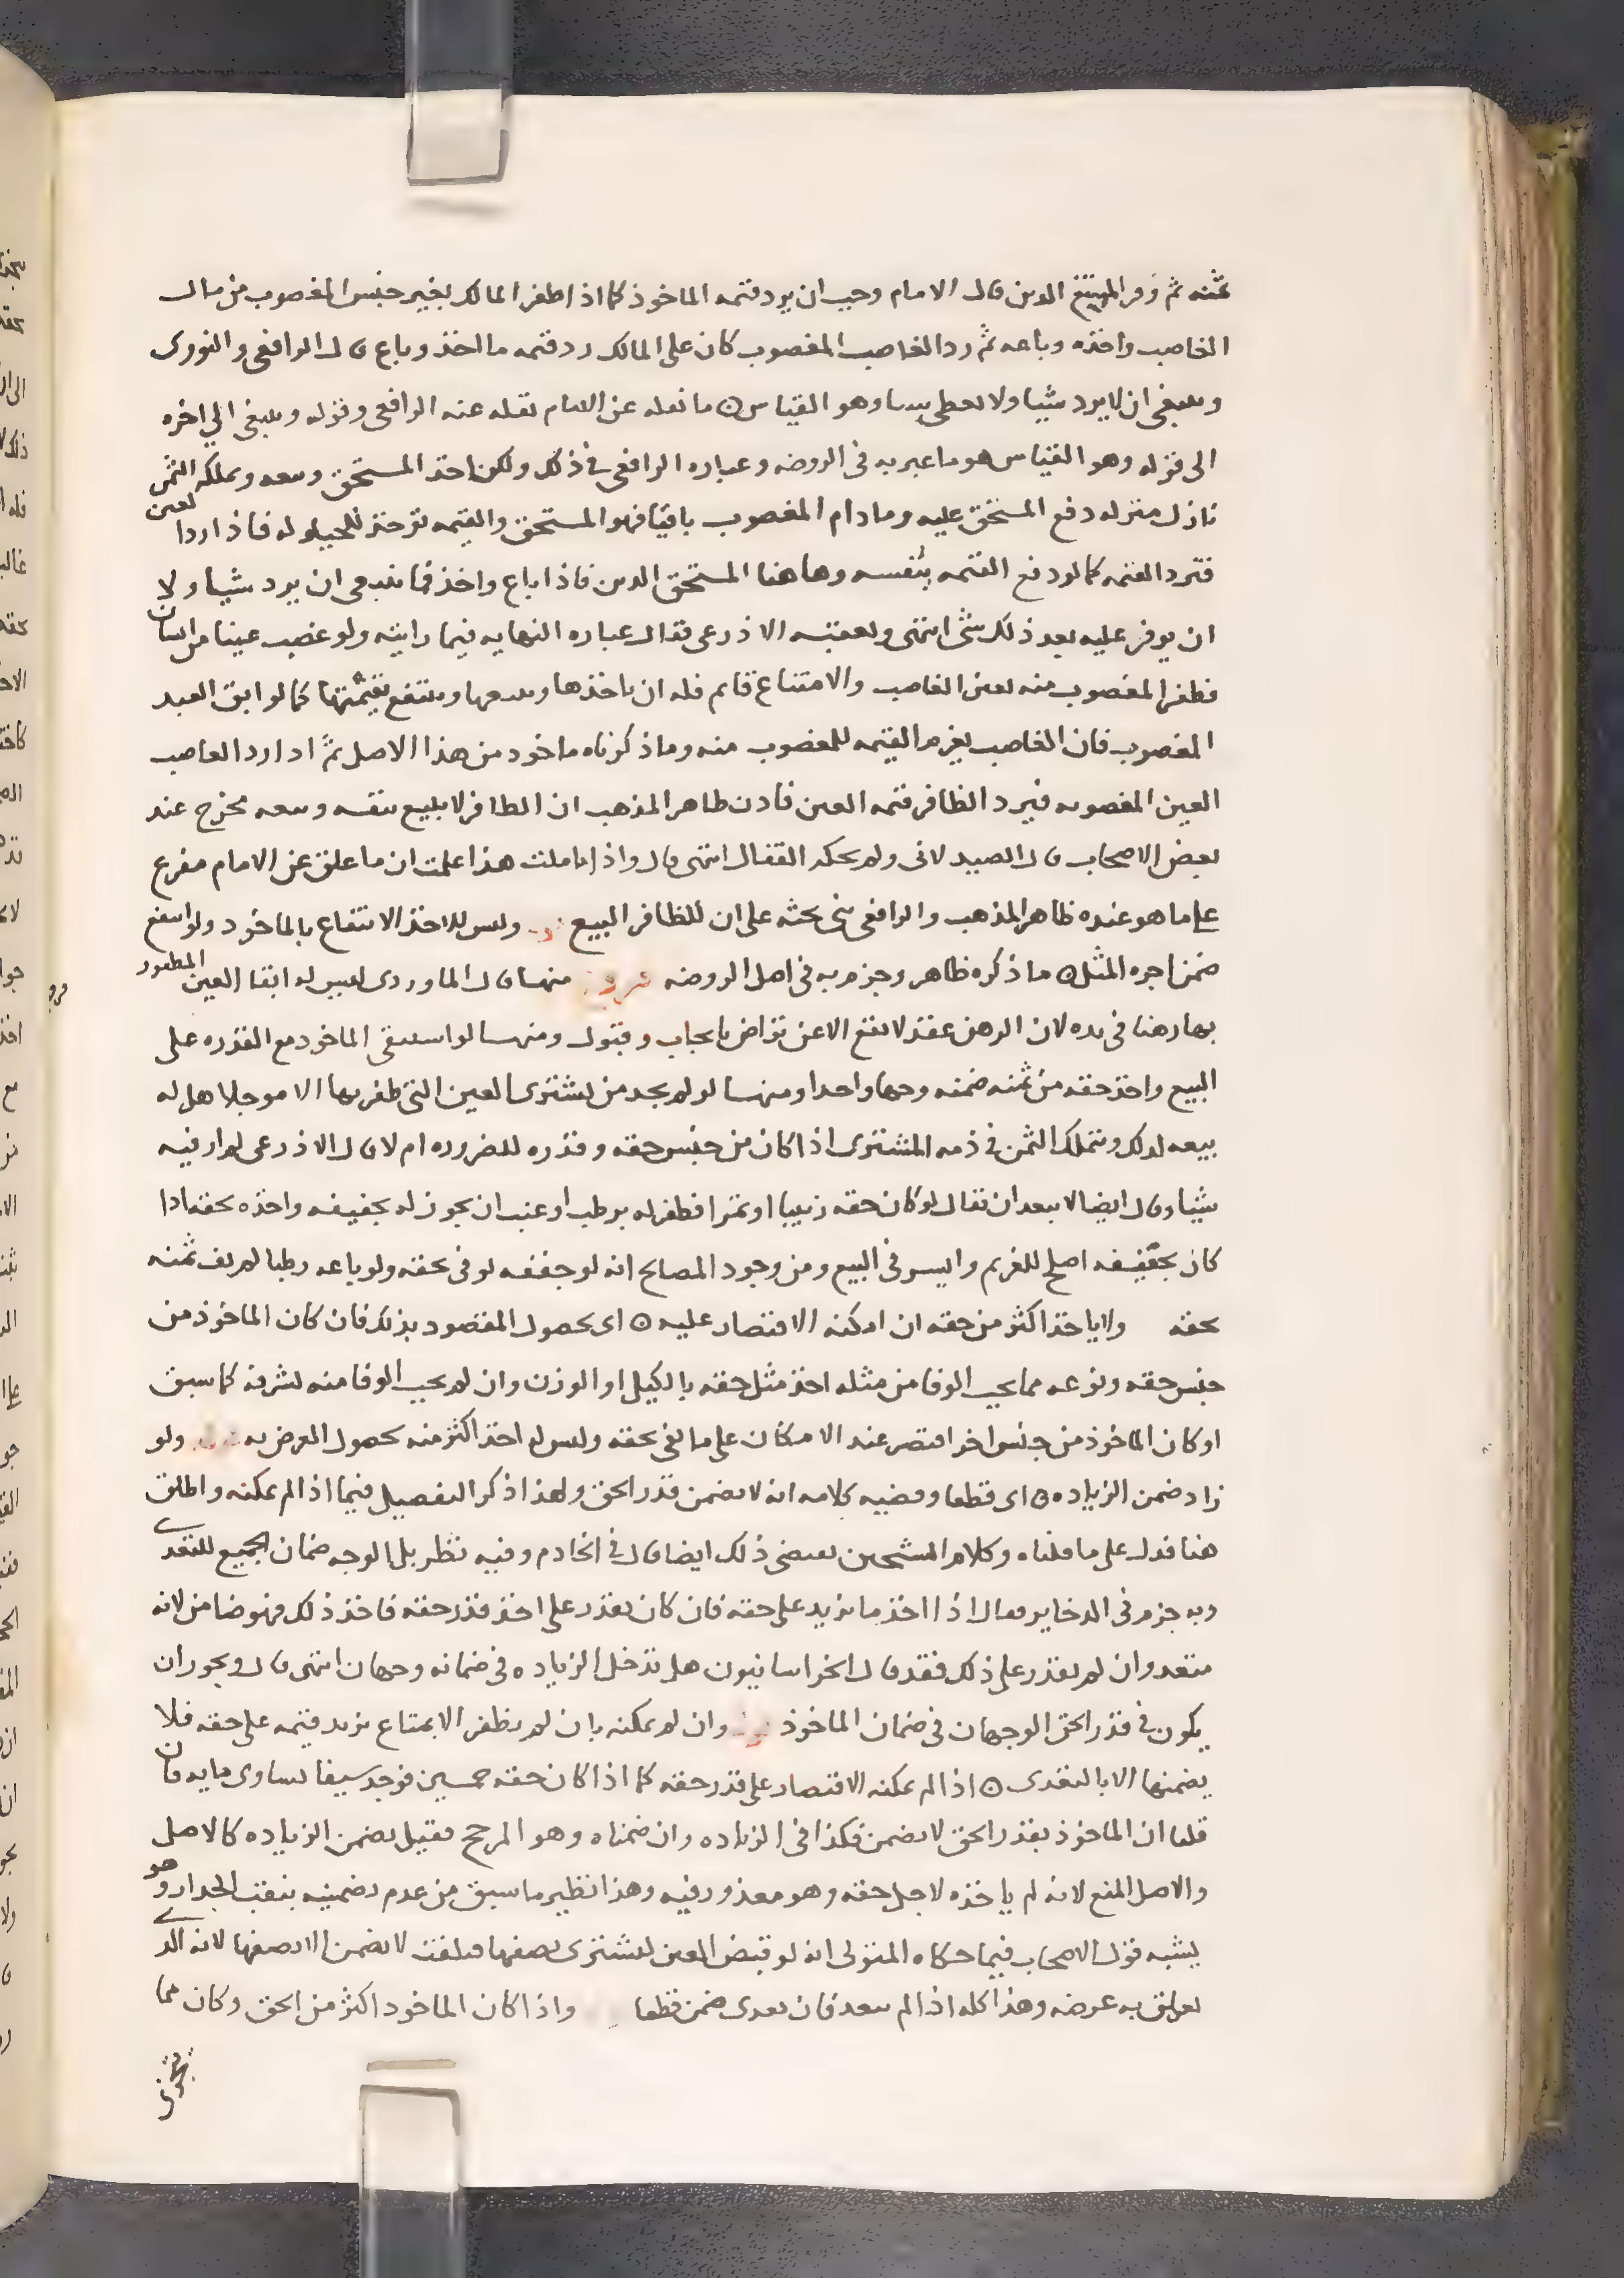 ثمنه ثم وفر الممتنع الدين قال الامام وجب ان يرد قيمه الماخوذ كما اذا ظفر المالك بغير جنس المغصوب من مال
الغاصب واخذه وباعه ثم رد الغاصب المغصوب كان على المالك رد قيمه ما اخذ وباع قال الرافعي والنووى
وينبغي ان لا يرد شيا ولا يعطي شيا وهو القياس ۞ ما نقله عن الامام نقله عنه الرافعي وقوله وينبغي الي اخره
الى قوله وهو القياس هو ما عبر به فى الروضه وعباره الرافعي في ذلك ولكن اخذ المستحق وبيعه وتملكه الثمن
نازل منزله دفع المستحق عليه وما دام المغصوب باقيا فهو المستحق والقيمه توخذ للحيلوله فاذا رد العين
فترد القيمه كما لو دفع القيمه بنفسه وهاهنا المستحق الدين فاذا باع واخذ فما ينبغي ان يرد شيا ولا
ان يوفر عليه بعد ذلك شي انتهى وتعقبه الاذرعي فقال عباره النهايه فيما رايته ولو غصب عينا من انسان
فظفر المغصوب منه بعين الغاصب والامتناع قايم فله ان ياخذها ويبيعها وينتفع بقيمتها كما لو ابق العبد
المغصوب فان الغاصب يغرم القيمه للمغصوب منه وما ذكرناه ماخوذ من هذا الاصل ثم اذا رد الغاصب
العين المغصوبه فيرد الظافر قيمه العين فان ظاهر المذهب ان الظافر لا يبيع بنفسه وبيعه مخرج عند
بعض الاصحاب قال الصيدلانى ولم يحكه القفال انتهى قال واذا تاملت هذا علمت ان ما علق عن الامام مفرع
على ما هو عنده ظاهر المذهب والرافعي بنى بحثه على ان للظافر البيع وليس للاخذ الانتفاع بالماخوذ ولو انتفع
ضمن اجره المثل ۞ ما ذكره ظاهر وجزم به فى اصل الروضه فروع منها قال الماوردى ليس له ابقا العين المظفور
بها رهنا فى يده لان الرهن عقد لا يقع الا عن تراض بايجاب وقبول ومنها لو استبقى الماخوذ مع القدره على
البيع واخذ حقه من ثمنه ضمنه وجها واحدا ومنها لو لم يجد من يشترى العين التي ظفر بها الا موجلا هل له
بيعه لذلك وتملك الثمن في ذمه المشترى اذا كان من جنس حقه وقدره للضروره ام لا قال الاذرعى لم ار فيه
شيا وقال ايضا لا يبعد ان يقال لو كان حقه زبيبا او تمرا فظفر له برطب او عنب ان يجوز له تجفيفه واخذه بحقه اذا
كان تجفيفه اصلح للغريم وايسر في البيع ومن وجود المصالح انه لو جففه لوفى بحقه ولو باعه رطبا لم يف ثمنه
بحقه ولا ياخذ اكثر من حقه ان امكنه الاقتصار عليه ۞ اى بحصول المقصود بذلك فان كان الماخوذ من
جنس حقه ونوعه مما يجب الوفا من مثله اخذ مثل حقه بالكيل او الوزن وان لم يجب الوفا منه لشرفه كما سبق
او كان الماخوذ من جنس اخر اقتصر عند الامكان على ما يفي بحقه وليس له اخذ اكثر منه بحصول الغرض به ولو
زاد ضمن الزياده ۞ اى قطعا وقضيه كلامه انه لا يضمن قدر الحق ولهذا ذكر التفصيل فيما اذا لم يمكنه واطلق
هنا فدل على ما قلناه وكلام الشيخين يقتضى ذلك ايضا قال في الخادم وفيه نظر بل الوجه ضمان الجميع للتعدى
وبه جزم فى الدخاير فقال اذا اخذ ما يزيد على حقه فان كان يقدر على اخذ قدر حقه فاخذ ذلك فهو ضامن لانه
متعد وان لم يقدر على ذلك فقد قال الخراسانيون هل تدخل الزياده فى ضمانه وجهان انتهى قال ويجوز ان
يكون في قدر الحق الوجهان فى ضمان الماخوذ وان لم يمكنه بان لم يظفر الا بمتاع يزيد قيمه على حقه فلا
يضمنها الا بالتعدى ۞ اذا لم يمكنه الاقتصار على قدر حقه كما اذا كان حقه خمسين فوجد سيفا يساوى مايه فان
قلنا ان الماخوذ بقدر الحق لا يضمن فكذا فى الزياده وان ضمناه وهو المرجح فقيل يضمن الزياده كالاصل
والاصل المنع لانه لم ياخذه لاجل حقه وهو معذور فيه وهذا نظير ما سبق من عدم تضمينه بنقب الجدار وهو
يشبه قول الاصحاب فيما حكاه المتولى انه لو قبض العين ليشترى نصفها فتلفت لا يضمن الا نصفها لانه الذى
تعلق به غرضه وهذا كله اذا لم يتعد فان تعدى ضمن قطعا واذا كان الماخوذ اكثر من الحق وكان مما